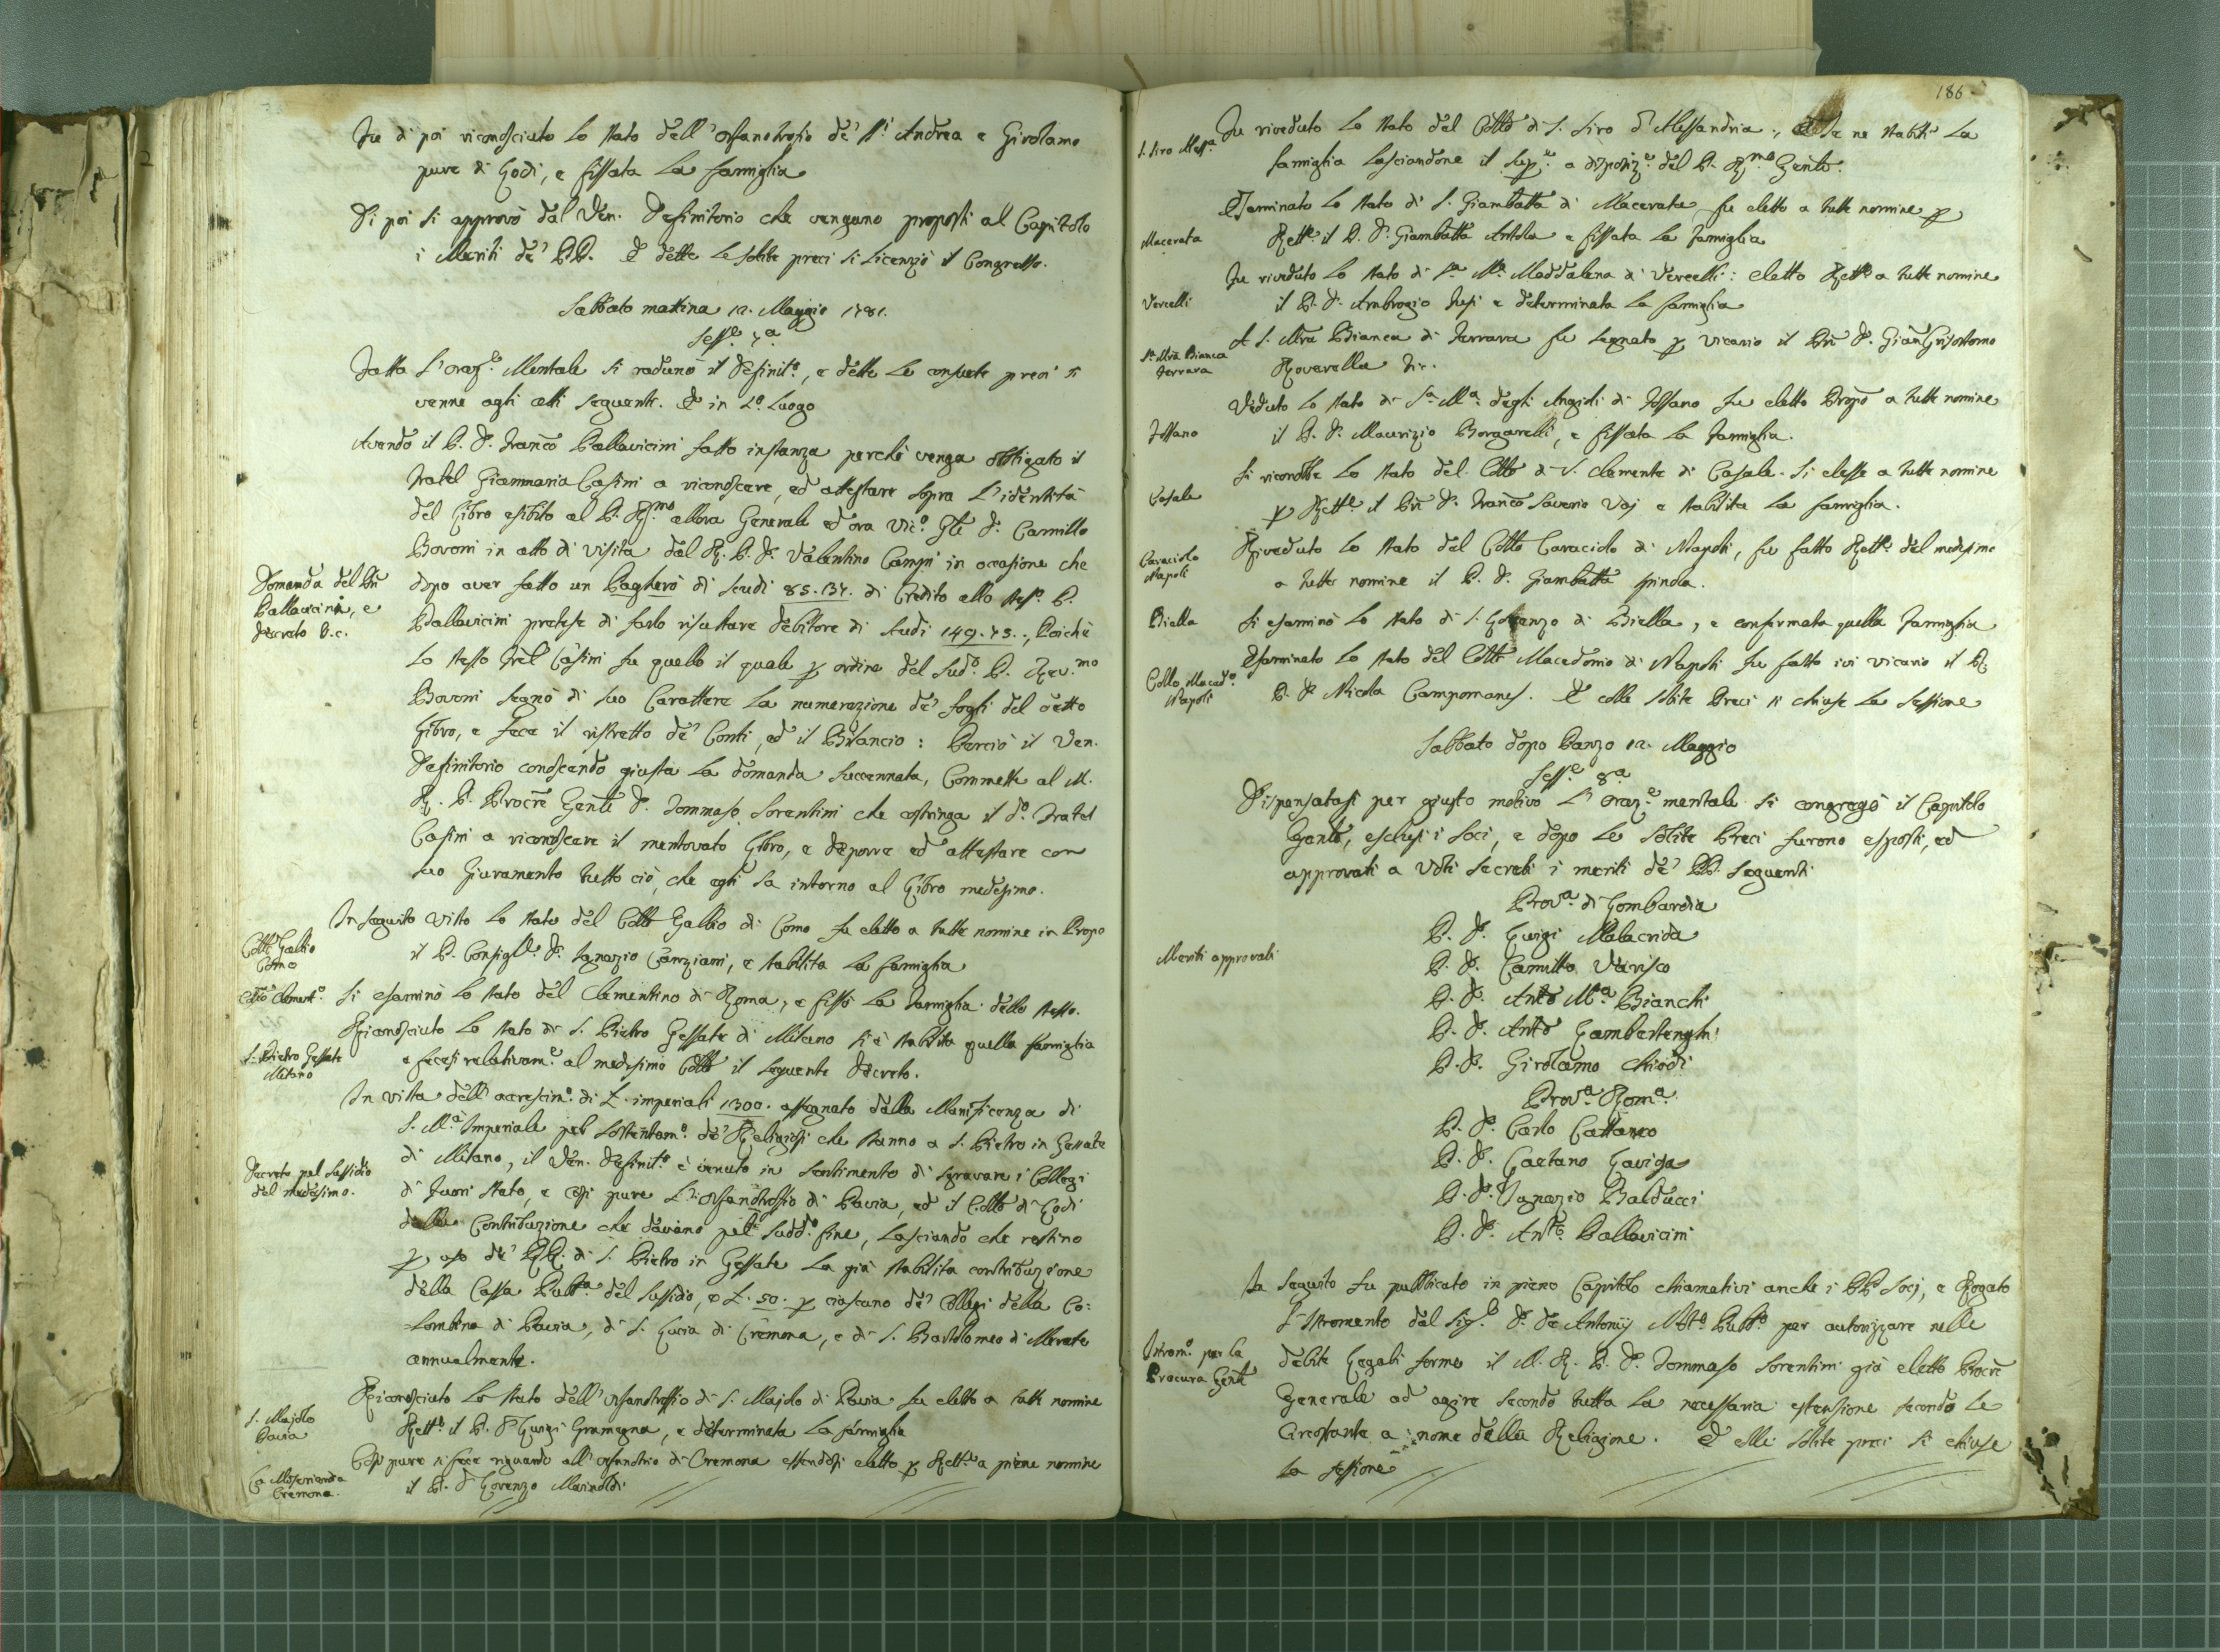 Fu di poi riconosciuto lo stato dell'Orfanotrofio de' SS.i Andrea e Girolamo
pure di Lodi, e fissata la famiglia
Di poi si approvò dal Ven. Definitorio che vengano proposti al Capitolo
i Meriti de' PP. E dette le solite preci si licenziò il Congresso.
Sabbato mattina 12. Maggio 1781.
Sess.e 7.a
Fatta l'oraz.e Mentale si radunò il Definit.o, e dette le consuete preci si
venne agli atti seguenti. E in 1.o luogo
Avendo il P. D. Fran.co Pallavicini fatto instanza perchè venga obbligato il
Fratel Giammaria Casini a riconoscere, ed attestare sopra l'identità
del Libro esibito al P. R.mo allora Generale ed ora Vic.o Gle D. Camillo
Bovoni in atto di visita dal R. P. D. Valentino Campi in occasione che
Domanda del Pre
Pallavicini, e
decreto D.c.
dopo aver fatto un Pagherò di scudi 85.134. di Credito allo stess.o P.
Pallavicini pretese di farlo risultare debitore di scudi 149.73., Poichè
lo stesso Frel Casini fu quello il quale p ordine del sud.o P. Rev.mo
Bovoni segnò di suo Carattere la numerazione de' fogli del detto
Libro, e fece il ristretto de' Conti, ed il Bilancio: Perciò il Ven.
Definitorio conoscendo giusta la domanda succennata, Commette al M.
R. P. Procre Genle D. Tommaso Sorentini che costringa il d.o Fratel
Casini a riconoscere il mentovato Libro, e deporre ed attestare con
suo Giuramento tutto ciò, che egli sa intorno al Libro medesimo.
Collo Gallio
Como
In seguito visto lo stato del Collo Gallio di Como fu eletto a tutte nomine in Propo
il P. Consigl.e D. Ignazio Canziani, e stabilita la famiglia
Collo Clement.o
Si esaminò lo stato del Clementino di Roma, e fissò la famiglia dello stesso.
S. Pietro Gessate
Milano
Riconosciuto lo stato di S. Pietro Gessate di Milano si è stabilita quella famiglia
e fecesi relativam.e al medesimo Collo il seguente decreto.
In vista dell'accrescim.o di L. imperiali 1300. assegnato dalla Munificenza di
S. M.à Imperiale pel sostentam.o de' Religiosi che stanno a S. Pietro in Gessate
Decreto pel sussidio
del medesimo.
di Milano, il Ven. Definit.o è venuto in sentimento di sgravare i Collegi
di fuori stato, e così pure l'Orfanotrofio di Pavia, ed il Collo di Lodi
dalla Contribuzione che davano pel sudd.o fine, lasciando che restino
p uso de' RR. di S. Pietro in Gessate la già stabilita contribuzione
della Cassa Pubb.a del sussidio, e L. 50. p ciascuno de' Collegi della Co=
=lombina di Pavia, di S. Lucia di Cremona, e di S. Bartolomeo di Merate
annualmente.
S. Majolo
Pavia
Riconosciuto lo stato dell'Orfanotrofio di S. Majolo di Pavia fu eletto a tutte nomine
Rett.e il P. D. Luigi Gramegna, e determinata la famiglia
La Misericordia
Cremona.
Così pure si fece riguardo all'Orfanotrio di Cremona essendosi eletto p Rett.e a piene nomine
il P. D. Lorenzo Marinoldi
186
S. Siro Aless.a
Fu riveduto lo stato del Collo di S. Siro d'Alessandria, e se ne stabilì la
famiglia lasciandone il sup.e a disposiz.e del P. R.mo Genle.
Macerata
Esaminato lo stato di S. Giambatta di Macerata fu eletto a tutte nomine p
Rett.e il P. D. Giambatta Antola e fissata la famiglia
Vercelli
Fu riveduto lo stato di S.a M.a Maddalena di Vercelli: eletto Rett.e a tutte nomine
il P. D. Ambrogio Fusi e determinata la famiglia
S.a Mra Bianca
Ferrara
A S. Mra Bianca di Ferrara fu segnato p vicario il Pre D. Gian Grisostomo
Roverella
Fossano
Veduto lo stato di S.a M.a degli Angioli di Fossano fu eletto Propo a tutte nomine
il P. D. Maurizio Borgarelli, e fissata la famiglia.
Casale
Si riconobbe lo stato del Collo di S. Clemente di Casale. Si elesse a tutte nomine
p Rett.e il Pre D. Fran.co Saverio Vaj e stabilita la famiglia.
Caraciolo
Napoli
Riveduto lo stato del Collo Caraciolo di Napoli, fu fatto Rett.e del medesimo
a tutte nomine il P. D. Giambatta Spinola.
Biella
Si esaminò lo stato di S. Lorenzo di Biella, e confirmata quella famiglia
Collo Maced.o
Napoli
Esaminato lo stato del Collo Macedonio di Napoli fu fatto ivi vicario il R.
P. D. Nicola Campomanes. E colle solite Preci si chiuse la sessione
Sabbato dopo Panzo 12. Maggio
Sess.e 8.a
Dispensatasi per giusto motivo l'oraz.e mentale si congregò il Capitolo
Genle, esclusi i Soci, e dopo le solite Preci furono esposti, ed
approvati a Voti secreti i meriti de' PP. seguenti
Meriti approvati
Prov.a di Lombardia
P. D. Luigi Malacrida
P. D. Camillo Varisco
P. D. Anto M.a Bianchi
P. D. Anto Lambertenghi
P. D. Girolamo Chiodi
Prov.a Rom.a
P. D. Carlo Cattaneo
P. D. Gaetano Laviosa
P. D. Ignazio Balducci
P. D. Ant.o Pallavicini
In seguito fu pubblicato in pieno Capitolo chiamativi anche i PP. Socj, e Rogato
Istrom.o per la
Procura Genle
l'Istromento dal Sig.e D. De Antonij Not.o Pubb.o per autorizzare nelle
debite Legali forme il M. R. P. D. Tommaso Sorentini già eletto Procre
Generale ad agire secondo tutta la necessaria estensione secondo le
Circostante a nome della Religione. E colle solite preci si chiuse
la sessione